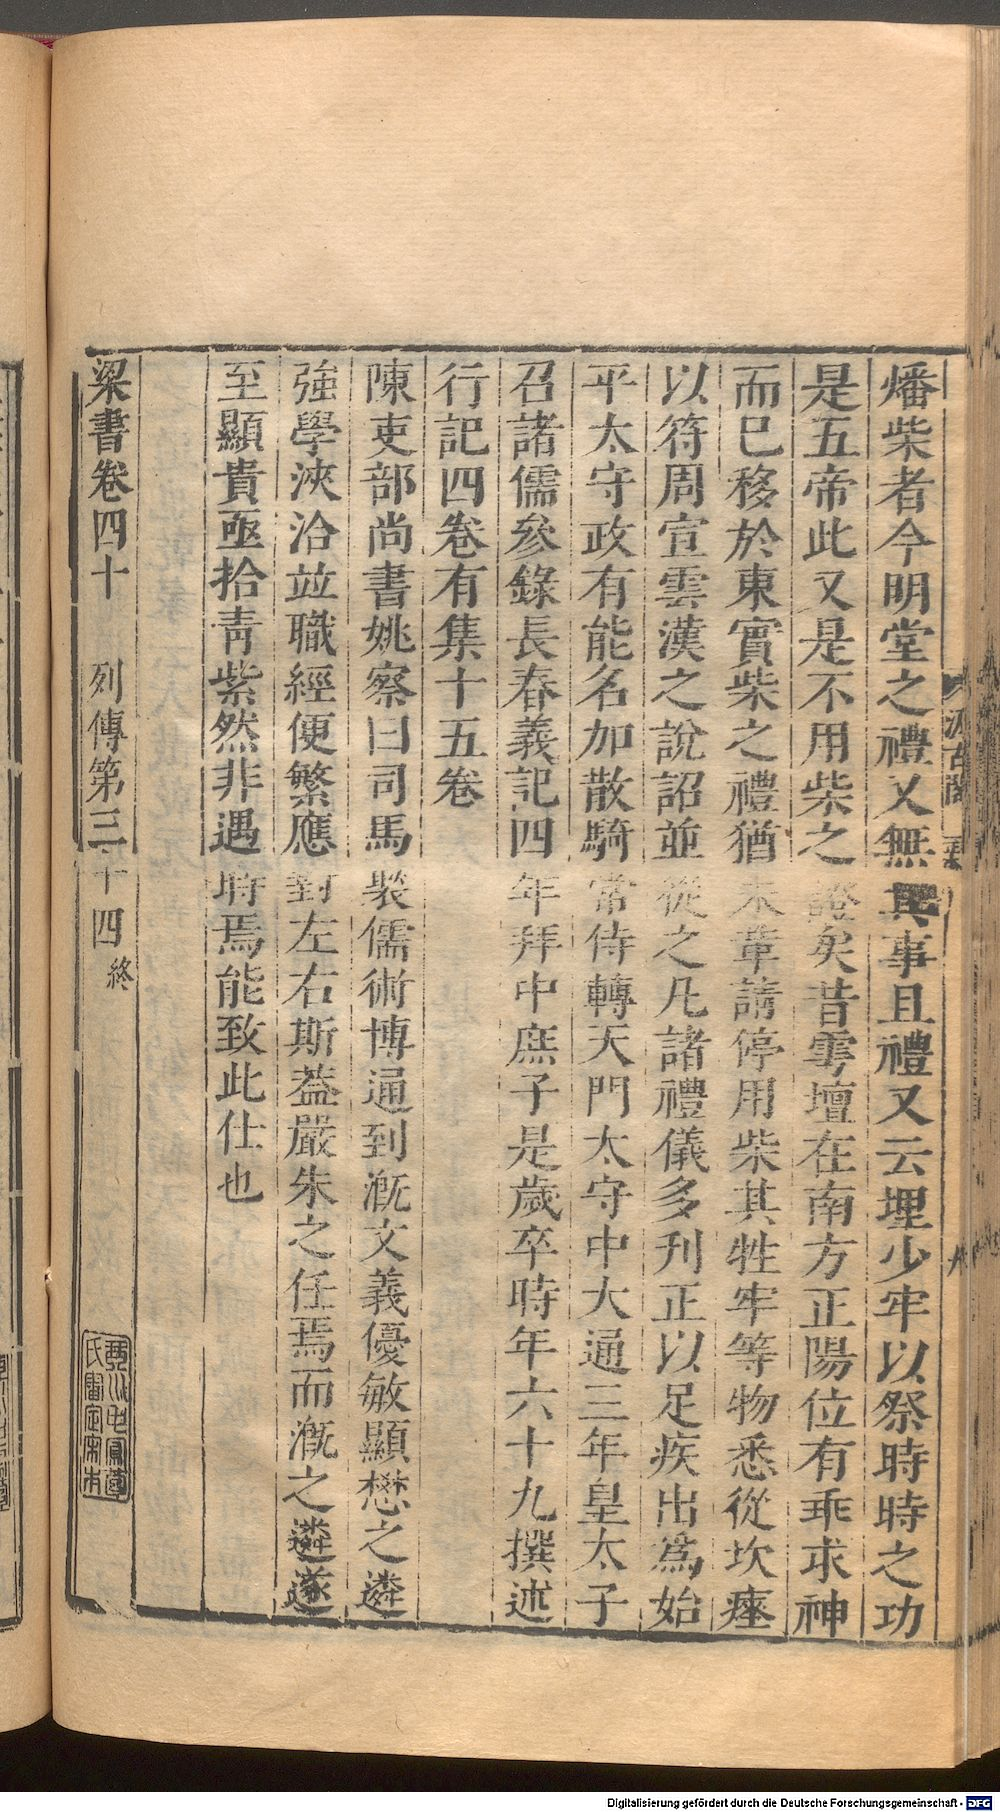 燔柴者今明堂之禮又無其事且禮又云埋少牢以祭時時之功
是五帝此又是不用柴之證矣昔雩壇在南方正陽位有乖求神
而已移於東實柴之禮猶未革請停用柴其牲牢等物悉從坎瘞
以符周宣雲漢之說詔並從之凡諸禮儀多刋正以足疾出爲始
平太守政有能名加散騎常侍轉天門太守中大通三年皇太子
召諸儒參錄長春義記四年拜中庶子是歲卒時年六十九撰述
行記四卷有集十五卷
陳吏部尚書姚察曰司馬褧儒術博通到漑文義優敏顯懋之遴
強學浹洽竝職經便繁應對左右斯葢嚴朱之任焉而漑之遴遂
至顯貴亟拾靑紫然非遇時焉能致此仕也
梁書卷四十 列傳第三十四終
汲古閣
九
Digitalisierung gefördert durch die Deutsche Forschungsgemeinschaft - DFG